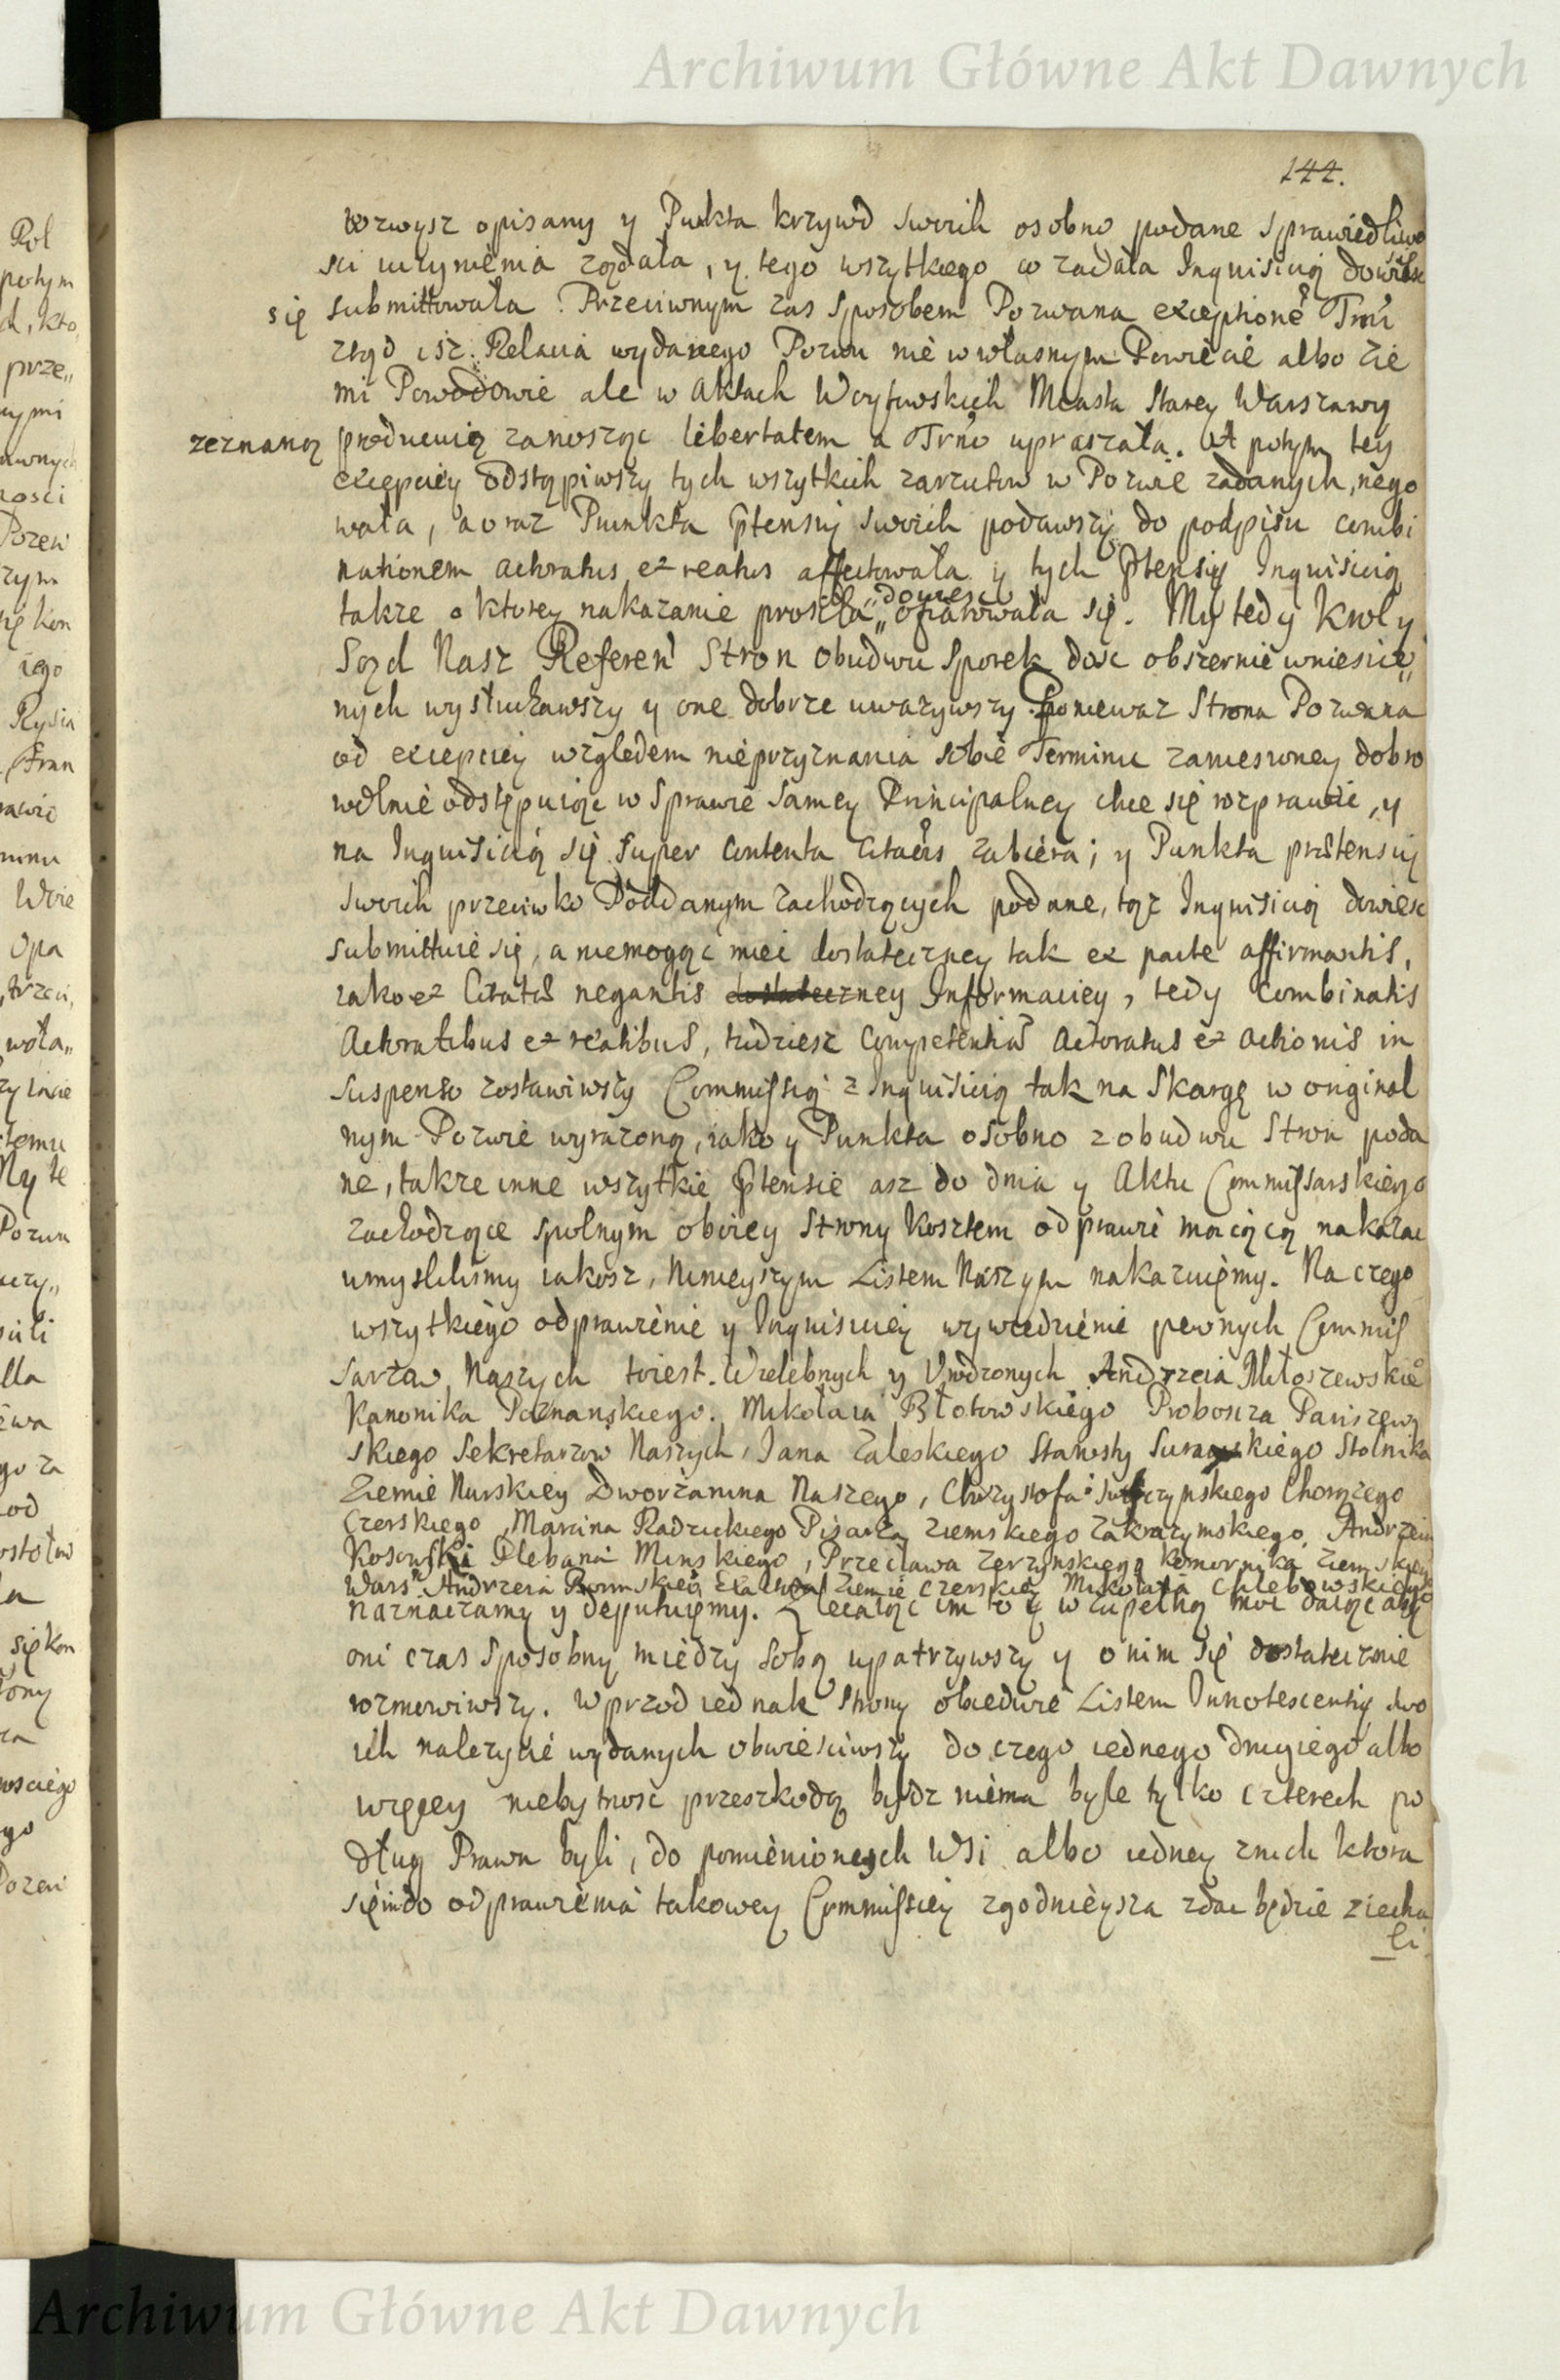 Archiwum Główne Akt Dawnych
144.
wzwysz opisany y Punkta krzywd swoich osobno podane sprawiedliwo
sci uczynienia ządała, y tego wszytkiego co zadała Inquisicią dowiesc
się submittowała. Przeciwnym zas sposobem Pozwana exceptionē Trm̄i
ztąd isz Relacia wydanego Pozwu nie w własnym Powiecie albo zie
mi Powodowie ale w Aktach Woytowskich Miasta Starey Warszawy
zeznaną producuią zanosząc libertatem a Trn̄o upraszała. A potym tey
excepciey odstąpiwszy tych wszytkich zarzutow w Pozwie zadanych, nego
wała, a oraz Punkta p̄tensij swoich podawszy do podpisu combi
nationem actoratus et reatus affectowała y tych p̄tensij Inquisicią
dowiesc
takze o ktorey nakazanie prosiła„ ofiarowała się. My tedy Krol y
Sąd Nasz Referen̄ Stron obudwu Sporek dosc obszernie wniesio„
nych wysłuchawszy y one dobrze uwazywszy. Poniewaz Strona Pozwana
od excepciey względem nieprzyznania sobie Terminu zaniesioney dobro
wolnie odstępuiąc w Sprawie samey Principalney chce się rozprawic, y
na Inquisicią się super contenta Citaōis zabiera; y Punkta prætensij
swoich przeciwko Poddanym zachodzących podane, tąz Inquisicią dowiesc
submittuie się, a niemogąc miec dostateczney tak ex parte affirmantis,
iako et Citatis negantis dostateczney Informaciey, tedy Combinatis
Actoratibus et reatibus, tudziesz Competentiā Actoratus et actionis in
suspenso zostawiwszy Commissią z Inquisicią tak na Skargę w original
nym Pozwie wyrazoną, iako y Punkta osobno z obudwu Stron poda
ne, takze inne wszytkie p̄tensie asz do dnia y Aktu Commissarskiego
zachodzące spolnym oboiey Strony Kosztem odprawic maiącą nakazac
umyslilismy iakosz, Ninieyszym Listem Naszym nakazuiemy. Na czego
wszytkiego odprawienie y Inquisiciey wywiedzienie pewnych Commis
sarzow Naszych to iest. Wielebnych y Urodzonych Andrzeia Miłoszewskieo
Kanonika Poznanskiego. Mikołaia Błotowskiego Proboscza Pariszew
skiego Sekretarzow Naszych, Jana Zaleskiego Starosty Surazskiego Stolnika
Ziemie Nurskiey Dworzanina Naszego, Chrzysofa Chorązego
Czerskiego, Marcina Radzickiego Pisarza Ziemskiego Zakrozymskiego, Andrzeia
Kosowski Plebana Minskiego, Przecława Zerzynskiego Komornika Ziemskiego
Wars: Andrzeia Ziemie Czerskiey Mikołaia Chlebowskiego
naznaczamy y deputuiemy. Zlecaiąc im to y w zupełną moc daiąc aby
oni czas sposobny między sobą upatrzywszy y o nim się dostatecznie
rozmowiwszy. Wprzod iednak Strony obiedwie Listem Innotescentij swo
ich nalezycie wydanych obwiesciwszy do czego iednego drugiego albo
więcey niebytnosc przeszkodą bydz niema byle tylko czterech po
dług Prawa byli, do pomienionych Wsi albo iedney znich ktora
się im do odprawienia takowey Commissiey zgodnieysza zdac będzie ziecha
li
Archiwum Główne Akt Dawnych